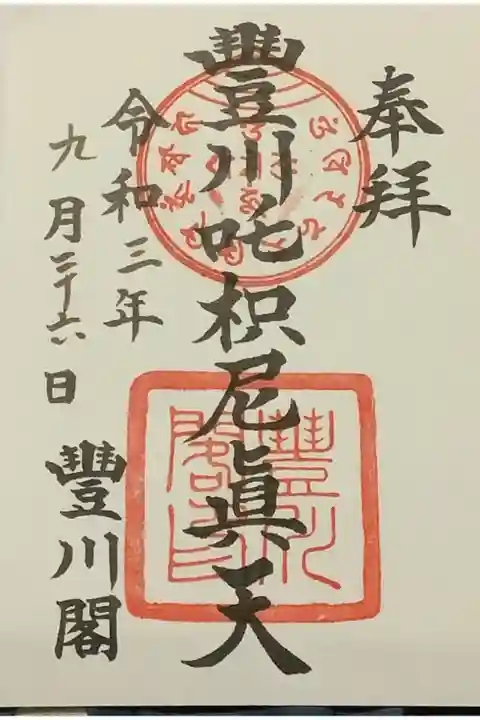 奉拜
豐川吒枳尼眞天
令和三年
九月二十六日
豐川閣
豐川
閣印